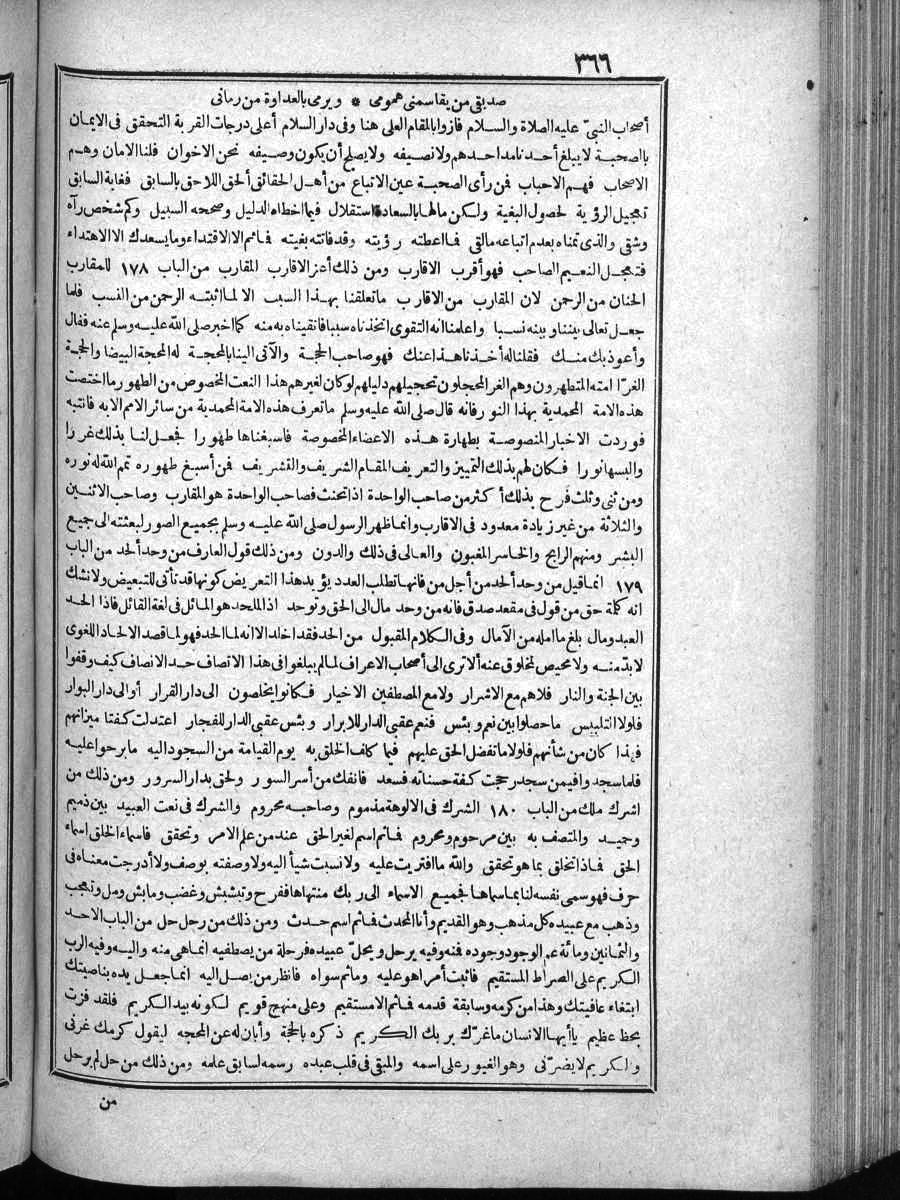 ٣٦٦
صديقي من يقاسمني همومي * ويرمي بالعداوة من رماني
أصحاب النبيّ عليه الصلاة والسلام فازوا بالمقام العلى هنا وفى دار السلام أعلى درجات القربة التحقق فى الايمان
بالصحبة لا يبلغ أحدنا مد أحدهم ولا نصيفه ولا يصلح أن يكون وصيفه نحن الاخوان فلنا الامان وهم
الاصحاب فهم الاحباب فمن رأى الصحبة عين الاتباع من أهل الحقائق ألحق اللاحق بالسابق فغاية السابق
تعجيل الرؤية لحصول البغية ولكن مالها بالسعادة استقلال فيما اخطاه الدليل وصححه السبيل وكم شخص رآه
وشقى والذى تمناه بعدم اتباعه مالقى فما اعطته رؤيته وقد فاتته بغيته فما ثم الا الاقتداء وما يسعدك الا الاهتداء
فتعجل النعيم الصاحب فهو أقرب الاقارب ومن ذلك أعز الاقارب المقارب من الباب ١٧٨ للمقارب
الحنان من الرحمن لان المقارب من الاقارب ما تعلقنا بهذا السبب الا لما اثبته الرحمن من النسب فلما
جعل تعالى بيننا وبينه نسبا واعلمنا انه التقوى اتخذناه سببا فاتقيناه به منه كما اخبر صلى الله عليه وسلم عنه فقال
وأعوذ بك منك فقلنا له أخذنا هذا عنك فهو صاحب الحجة والآتى الينا بالمحجة له المحجة البيضا والحجة
الغرّا امته المتطهرون وهم الغر المحجلون تحجيلهم دليلهم لو كان لغيرهم هذا النعت المخصوص من الطهور ما اختصت
هذه الامة المحمدية بهذا النور فانه قال صلى الله عليه وسلم ما تعرف هذه الامة المحمدية من سائر الامم الا به فانتبه
فوردت الاخبار المنصوصة بطهارة هذه الاعضاء المخصوصة فاسبغناها طهورا فجعل لنا بذلك غررا
والبسها نورا فكان لهم بذلك التمييز والتعريف المقام الشريف والتشريف فمن أسبغ طهوره تمم الله له نوره
ومن ثنى وثلث فرح بذلك أكثر من صاحب الواحدة اذا تحنث فصاحب الواحدة هو المقارب وصاحب الاثنين
والثلاثة من غير زيادة معدود فى الاقارب وانما ظهر الرسول صلى الله عليه وسلم بجميع الصور لبعثته الى جميع
البشر ومنهم الرابح والخاسر المغبون والعالى فى ذلك والدون ومن ذلك قول العارف من وحد ألحد من الباب
١٧٩ انما قيل من وحد ألحد من أجل من فانها تطلب العدد يؤيد هذا التعريض كونها قد تأتى للتبعيض ولا نشك
انه كلمة حق من قول فى مقعد صدق فانه من وحد مال الى الحق وتوحد اذ الملحد هو المائل فى لغة القائل فاذا الحد
العبد ومال بلغ ما امله من الآمال وفى الكلام المقبول من الحد فقد اخلد الا انه لما الحد فهو لما قصد الالحاد اللغوى
لا بدّ منه ولا محيص لمخلوق عنه ألا ترى الى أصحاب الاعراف لما لم يبلغوا فى هذا الاتصاف حد الانصاف كيف وقفوا
بين الجنة والنار فلا هم مع الاشرار ولا مع المصطفين الاخيار فكانوا يخلصون الى دار القرار أو الى دار البوار
فلولا التلبيس ما حصلوا بين نعم وبئس فنعم عقبى الدار للابرار وبئس عقبى الدار للفجار اعتدلت كفتا ميزانهم
فهذا كان من شأنهم فلولا ما تفضل الحق عليهم فيما كلف الخلق به يوم القيامة من السجود اليه ما برحوا عليه
فلما سجدوا فيمن سجد رجحت كفة حسناته فسعد فانفك من أسر السور ولحق بدار السرور ومن ذلك من
اشرك ملك من الباب ١٨٠ الشرك فى الالوهة مذموم وصاحبه محروم والشرك فى نعت العبيد بين ذميم
وحميد والمتصف به بين مرحوم ومحروم فما ثم اسم لغير الحق عند من علم الامر وتحقق فاسماء الخلق اسماء
الحق فماذا تخلق بما هو تحقق والله ما افتريت عليه ولا نسبت شيأ اليه ولا وصفته بوصف ولا أدرجت معناه فى
حرف فهو سمى نفسه لنا بما سماها فجميع الاسماء الى ربك منتهاها ففرح وتبشبش وغضب وما بش ومل وتعجب
وذهب مع عبيده كل مذهب وهو القديم وأنا المحدث فما ثم اسم حدث ومن ذلك من رحل حل من الباب الاحد
والثمانين ومائة عم الوجود وجوده فمنه وفيه يرحل ويحلّ عبيده فرحلة من يصطفيه انما هى منه واليه وفيه الرب
الكريم على الصراط المستقيم فاثبت أمرا هو عليه وما ثم سواه فانظر من يصل اليه انما جعل يده بناصيتك
ابتغاء عافيتك وهذا من كرمه وسابقة قدمه فما ثم الا مستقيم وعلى منهج قويم لكونه بيد الكريم فلقد فزت
بحظ عظيم يا أيها الانسان ما غرّك بربك الكريم ذكره بالحجة وأبان له عن المحجه ليقول كرمك غرنى
والكريم لا يضرّنى وهو الغيور على اسمه والمبقى فى قلب عبده رسمه لسابق علمه ومن ذلك من حل لم يرحل
من